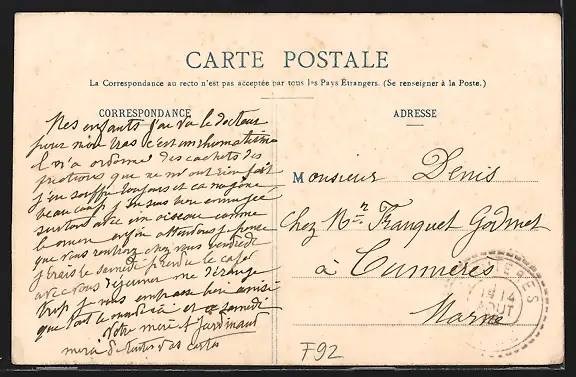 CARTE POSTALE
La Correspondance au recto n'est pas acceptée par tous les Pays Étrangers. (Se renseigner à la Poste.)
CORRESPONDANCE
ADRESSE
Mes enfants j'ai vu le docteur
pour mon bras c'est un rhumatisme
il m'a ordonné des cachets des
frictions que ne m'ont rien fait
j'en souffre toujours et ca me gène
beaucoup je suis bien ennuyée
surtout avec un oiseau comme
le mien enfin attendons je pense
que vous rentrez chez vous vendredi
j'irais le samedi prendre le café
avec vous déjeuner me dérange
trop je vous embrasse bien ainsi
que tout le et a samedi
Votre mère F Jardinaut
merci de toutes vos cartes
Monsieur Denis
chez Mr Franquet Godmet
à Cumières
Marne
14
AOUT
F92